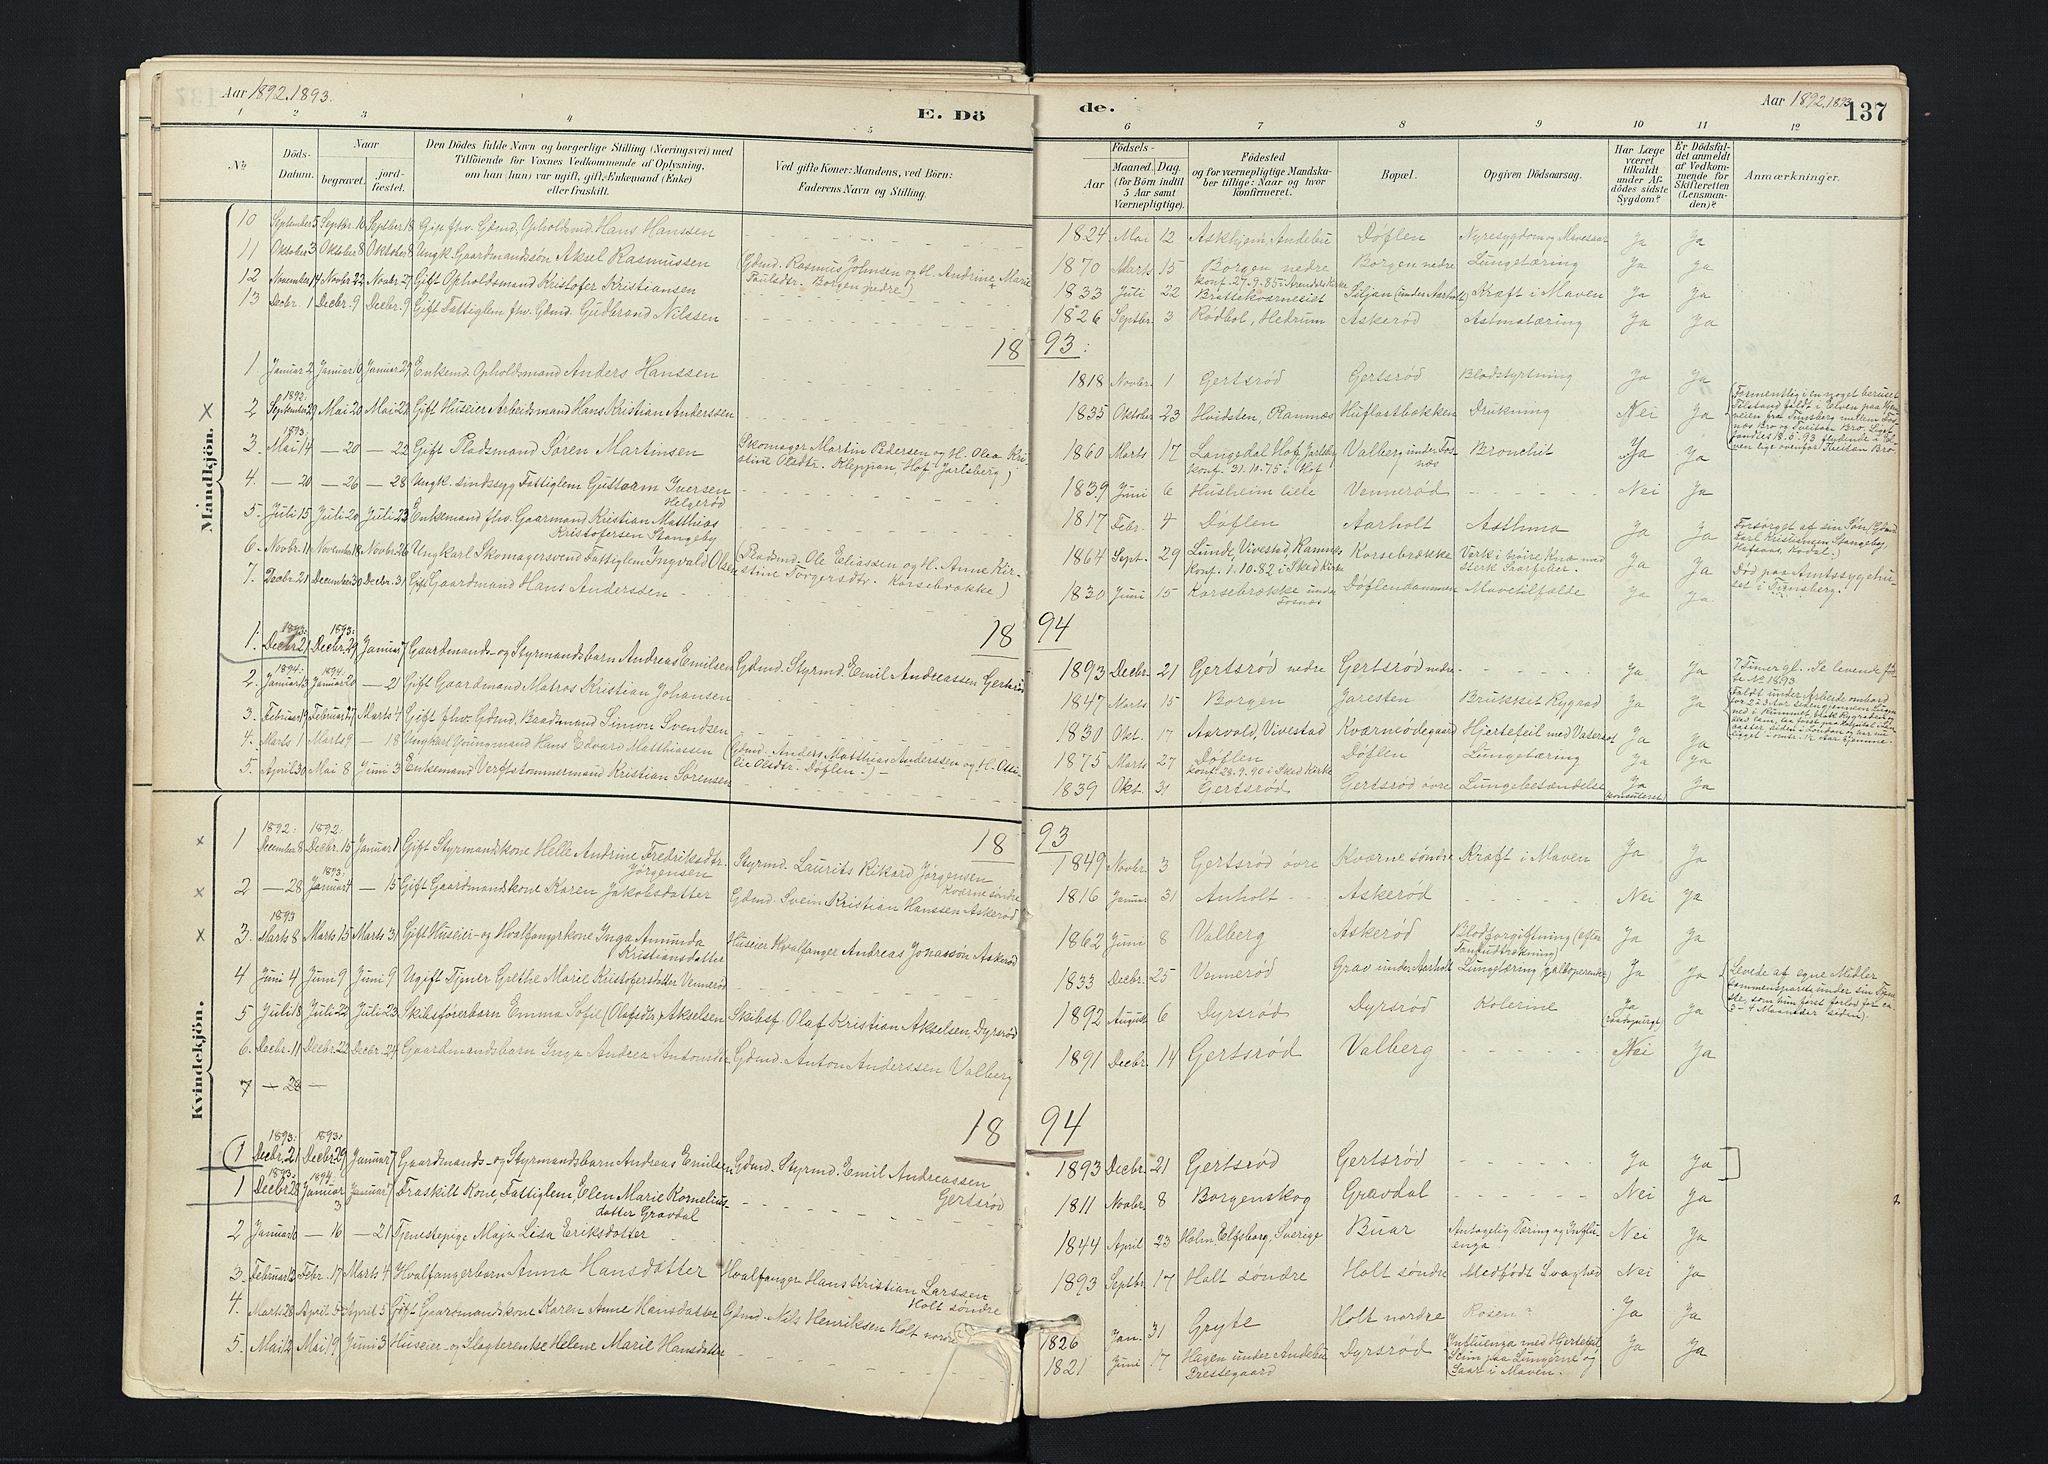 Aar 1892. 1893.
E. Dö
1 2 3 4 5
№
Döds-Datum.
Naar
begravet.
jord-fæstet.
Den Dödes fulde Navn og borgerlige Stilling (Næringsvei) med
Tilföiende for Voxnes Vedkommende af Oplysning,
om han (hun) var ugift, gift, Enkemand (Enke)
eller fraskilt.
Ved gifte Koner: Mandens, ved Börn:
Faderens Navn og Stilling.
Mandkjön.
10 September 5 Septbr. 10 Septber 18 Gift fhv. Gdmd. Opholdsmd. Hans Hanssen
11 Oktober 3 Oktober 8 Oktober 8 Ungk. Gaardmandsön Aksel Rasmussen (Gdmd. Rasmus Johnsen og H. Andrine Marie
Paulsdtr. Borgen nedre)
12 November 14 Novbr. 22 Novbr. 27 Gift Opholdsmand Kristofer Kristiansen
13 Decbr. 1 Decbr. 9 Decbr. 9 Gift Fattiglem fhv. Gdmd. Gudbrand Nilssen
18
1 Januar 2 Januar 10 Januar 29 Enkemd. Opholdsmand Anders Hanssen
1892.
× 2 September 29 Mai 20 Mai 22 Gift Huseier Arbeidsmand Hans Kristian Anderssen
1893.
3. Mai 14 — 20 — 22 Gift Pladsmand Søren Martinsen Skomager Martin Pedersen og H. Olea Kri-
stine Olsdtr. Kleppan, Hof, Jarlsberg)
4. — 20 — 26 — 28 Ungk. sindssyg Fattiglem Gustav Iversen
Helgerød
5. Juli 15 Juli 20 Juli 23 Enkemand fhv. Gaarmand Kristian Matthias
Kristofersen Stangeby
6. Novbr. 11 November 18 Novbr. 26 Ungkarl Skomagersvend Fattiglem Ingvald Olsen (Pladsmd. Ole Eliassen og H. Anne Kir-
stine Torgersdtr. Korsebrække)
7. Decbr. 21 December 30 Decbr. 31 Gift Gaardmand Hans Anderssen
18
1893: 1893:
1. Decbr. 21 Decbr. 29 Januar 7 Gaardmands- og Styrmandsbarn Andreas Emilsen Gdmd. Styrmd. Emil Andreassen Gertsrød
1894. 1894.
2. Januar 13 Januar 20 — 21 Gift Gaardmand Matros Kristian Johansen
3. Februar 19 Februar 27 Marts 4 Gift fhv. Gdmd. Baadsmand Simon Svendsen
4. Marts 1 Marts 9 — 18 Ungkarl Youngmand Hans Edvard Matthiassen (Gdmd. Anders Matthias Anderssen og H. Otti-
lie Olsdtr. Døflen.)
5. April 30 Mai 8 Juni 3 Enkemand Verftstømmermand Kristian Sørensen
Kvindekjön.
18
1892: 1892:
× 1 December 8 Decbr. 15 Januar 1 Gift Styrmandskone Helle Andrine Fredriksdtr.
Jørgensen Styrmd. Laurits Rikard Jørgensen
Kværne søndre
1893:
× 2 — 28 Januar 4 — 15 Gift Gaardmandkone Karen Jakobsdatter Gdmd. Svein Kristian Hanssen Askerød
1893
× 3. Marts 8 Marts 15 Marts 31 Gift Huseier- og Hvalfangerkone Inga Amunda
Kristiansdatter Huseier Hvalfanger Andreas Jonassøn Askerød
4 Juni 4 Juni 9 Juni 9 Ugift Tjener Grethe Marie Kristofersdatter Vennerød
5 Juli 18 Juli 22 Juli 23 Skibsførerbarn Emma Sofie (Olafsdtr.) Akselsen Skibsf. Olaf Kristian Akselsen, Dyrsrød
6. Decbr. 11 Decbr. 22 Decbr. 24 Gaardmandsbarn Inga Andrea Antonsdtr. Gdmd. Anton Anderssen Valberg
7 — 28 —
18
1893: 1893:
(1 Decbr. 21 Decbr. 29 Januar 7 Gaardmands- og Styrmandsbarn Andreas Emilsen Gdmd. Styrmd. Emil Andreassen
Gertsrød
1893. 1894.
1 Decbr. 28 Januar 3 Januar 7 Fraskilt Kone, Fattiglem Elen Marie Kornelius-
datter Gravdal
2 Januar 10 — 16 — 21 Tjenestepige Maja Lisa Eriksdatter
3. Februar 13 Febr. 17 Marts 4 Hvalfangerbarn Anna Hansdatter Hvalfanger Hans Kristian Larssen
Holt søndre
4. Marts 28 April 5 April 5 Gift Gaarmandskone Karen Anne Hansdatter Gdmd. Nils Henriksen Holt nordre
5. Mai 12 Mai 19 Juni 3 Huseier- og Slagterenke Helene Marie Hansdatter
de.
Aar 1892. 1893
137
6 7 8 9 10 11 12
Födsels-
Aar
Maaned. Dag.
(for Börn indtil
5 Aar samt
Værnepligtige).
Födested
og for værnepligtige Mandska-
ber tillige: Naar og hvor
konfirmeret.
Bopæl.
Opgiven Dödsaarsag.
Har Læge
været
tilkaldt
under Af-
dödes sidste
Sygdom?
Er Dödsfal-
det anmeldt
af Vedkom-
mende for
Skifteretten
(Lensman-
den)?
Anmærkninger.
1824 Mai 12 Askhjem, Andebu Døflen Nyresygdom og Mavesaar Ja Ja
1870 Marts 15 Borgen nedre Borgen nedre Lungetæring Ja Ja
Konf. 27.9.85 i Arendals Kirke
1833 Juli 22 Brattekværneseist Siljan (under Aarholt) Kræft i Maven Ja Ja
1826 Septbr. 3 Rødbøl, Hedrum Askerød Astmatæring Ja Ja
93:
1818 Novbr. 1 Gertsrød Gertsrød Blodstyrtning Ja Ja
1835 Oktober 23 Hvidsten, Ramnæs Huflastbakken Drukning Nei Ja Formentlig i en noget beruset
Tilstand faldt i Elven paa Hjem-
veien fra Tønsberg mellem Fos-
næs Bro og Tveitan Bro. Liget
fandtes 18.5.93 flydende i El-
ven lige ovenfor Tveitan Bro.
1860 Marts 17 Langedal Hof, Jarlsbg. Valberg under Fos-
næs Bronchit Ja Ja
Konf. 31.10.75 i Hof
1839 Juni 6 Husheim lille Vennerød Nei Ja
1817 Febr. 4 Døflen Aarholt Asthma Ja Ja Forsørget af sin Søn, Gdmd.
Karl Kristiansen Stangeby
Hafsaas, Kodal.
1864 Sept. 29 Lunde Vivestad, Ramnes Korsebrække Verk i høire Knæ med
sterk Saarfeber. Ja Ja Død paa Amtssygehu-
set i Tønsberg.
Konf. 1.10.82 i Skad Kirke
1830 Juni 15 Korsebrække under
Fosnæs Døflendammen Mavetilfælde Ja Ja
94
1893 Decbr. 21 Gertsrød nedre Gertsrød nedre Ja Ja 7 Timer gl. Se levende fød-
te № 1893
1847 Marts 15 Borgen Jaresten Brukket Rygrad Ja Ja Faldt under Arbeide ombord
1830 Okt. 17 Aarvold, Vivestad Kværneødegaard Hjertefeil med Vatersot Ja Ja
1875 Marts 27 Døflen Døflen Lungetæring Ja Ja
Konf. 28.9.90 i Skad Kirke
1839 Okt. 31 Gertsrød Gertsrød øvre Lungebetændelse Ja
(konsuleret) Ja
93
1849 Novbr. 3 Gertsrød øvre Kværne søndre Kræft i Maven Ja Ja
1816 Januar 31 Anholt Askerød Nei Ja
1862 Juni 8 Valberg Askerød Blodforgiftning (efter
Tandudtrækning) Ja Ja
1833 Decbr. 25 Vennerød Grav under Aarholt Lungetæring (galloperende) Ja Ja Levede af egne Midler
sammensparete under sin Tjene-
ste, som hun først forlod for ca.
3-4 Maaneder siden).
1892 August 6 Dyrsrød Dyrsrød Kolerine Ja
(raadspurgt) Ja
1891 Decbr. 14 Gertsrød Valberg Nei Ja
94
1893 Decbr. 21 Gertsrød Gertsrød Ja Ja
1811 Novbr. 8 Borgenskog Gravdal Nei Ja
1844 April 23 Holm, Elfsborg, Sverige Buar Antagelig Tæring og Influ-
enza Nei Ja
1893 Septbr. 17 Holt søndre Holt søndre Medfødt Svaghed Nei Ja
1826 Jan. 31 Gryte Holt nordre Rosen? Ja Ja
1821 Juni 17 Hagen under Andebu
Prestegaard Dyrsrød Influenza med Hjertefeil
Slim paa Lungerne og
Saar i Maven. Ja Ja